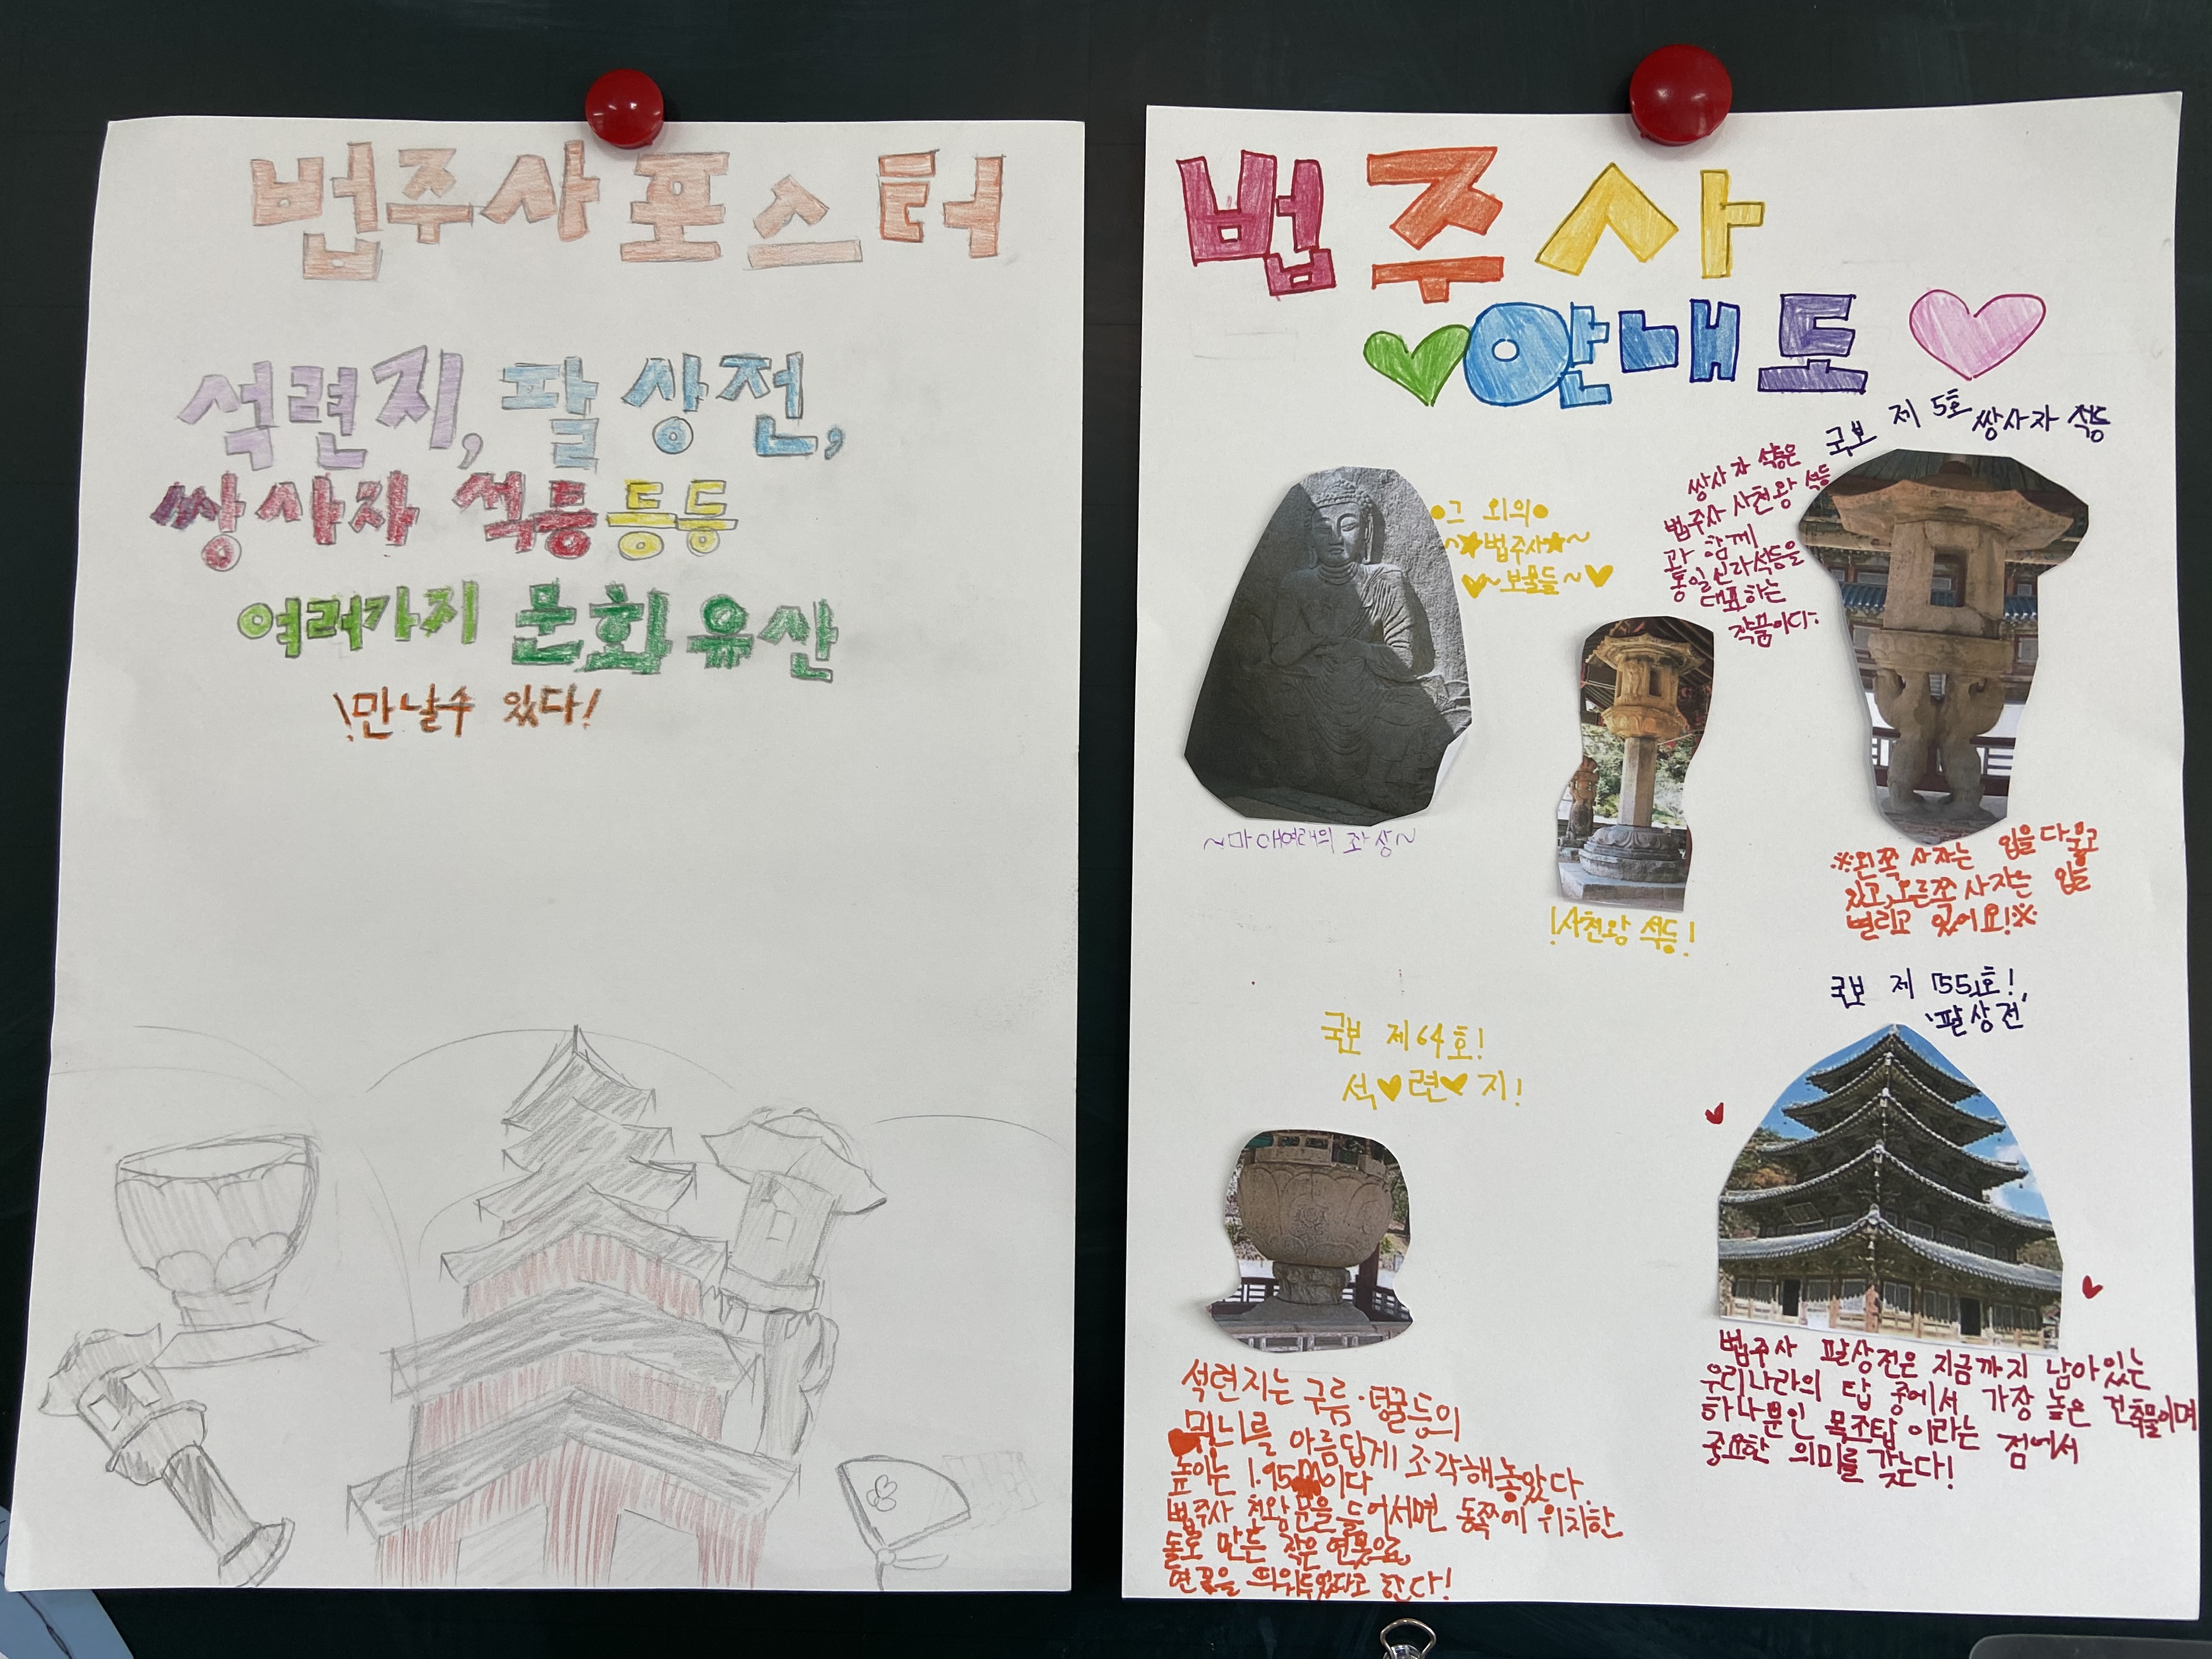 법주사 포스터
석련지, 팔상전,
쌍사자 석등 등등
여러가지 문화 유산
!만날수 있다!
법주사
안내도
국보 제 5호 쌍사자 석등
쌍사자 석등은
법주사 사천왕 석등
과 함께
통일신라석등을
대표하는
작품이다.
그 외의
~법주사~
~보물들~
~마애여래의 좌상~
!사천왕 석등!
※왼쪽 사자는 입을 다물고
있고,오른쪽 사자는 입을
벌리고 있어요!※
국보 제64호!
석련지!
석련지는 구름·덩굴등의
무늬를 아름답게 조각해놓았다.
높이는 1.95m이다
법주사 천왕문을 들어서면 동쪽에 위치한
돌로 만든 작은 연못으로,
연꽃을 띄워두었다고 한다!
국보 제 55호!
'팔상전'
법주사 팔상전은 지금까지 남아있는
우리나라의 탑 중에서 가장 높은 건축물이며
하나뿐인 목조탑이라는 점에서
중요한 의미를 갖는다!